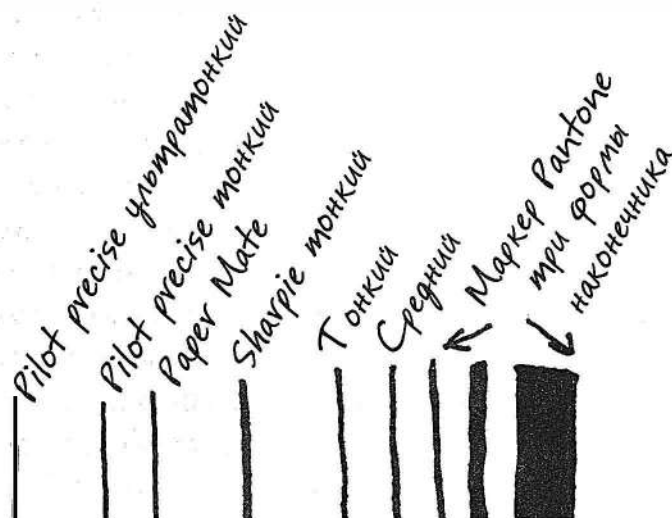 Pilot precise ультратонкий
Pilot precise тонкий
Paper Mate
Sharpie тонкий
Тонкий
Средний
Маркер Pantone
три формы
наконечника